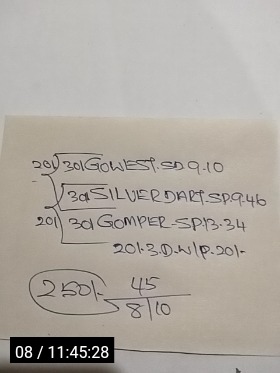 20/ 30/ GOWEST.SD 9.10
30/ SILVER DART.SP.9.46
20/ 30/ GOMPER-SP13.34
20/.3.D.W/P.20/-
250/- 45
8/10
08 / 11:45:28